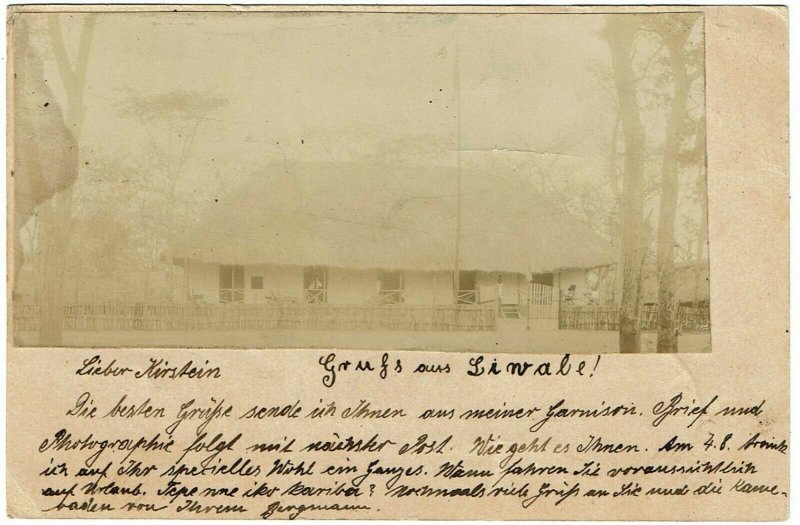 Lieber Kirstein
Gruß aus Liwale!
Die besten Grüße sende ich Ihnen aus meiner Garnison. Brief und
Photographie folgt mit nächster Post. Wie geht es Ihnen. Am 4.8. trank
ich auf Ihr specielles Wohl ein Ganzes. Wann fahren Sie voraussichtlich
auf Urlaub. nochmals viele Grüß an Sie und die Kame-
raden von Ihrem Bergmann.